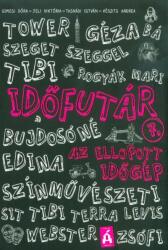 GIMESI DÓRA – JELI VIKTÓRIA – TASNÁDI ISTVÁN – VÉSZITS ANDREA
TOWER GÉZA BÁ
SZEGET SZEGGEL
TIBI ROGYÁK MARI
IDŐFUTÁR
BUJDOSÓNÉ
EDINA AZ ELLOPOTT
IDŐGÉP
SZÍNMŰVÉSZETI
SIT TIBI TERRA LEVIS
WEBSTER Á ZSÓFI